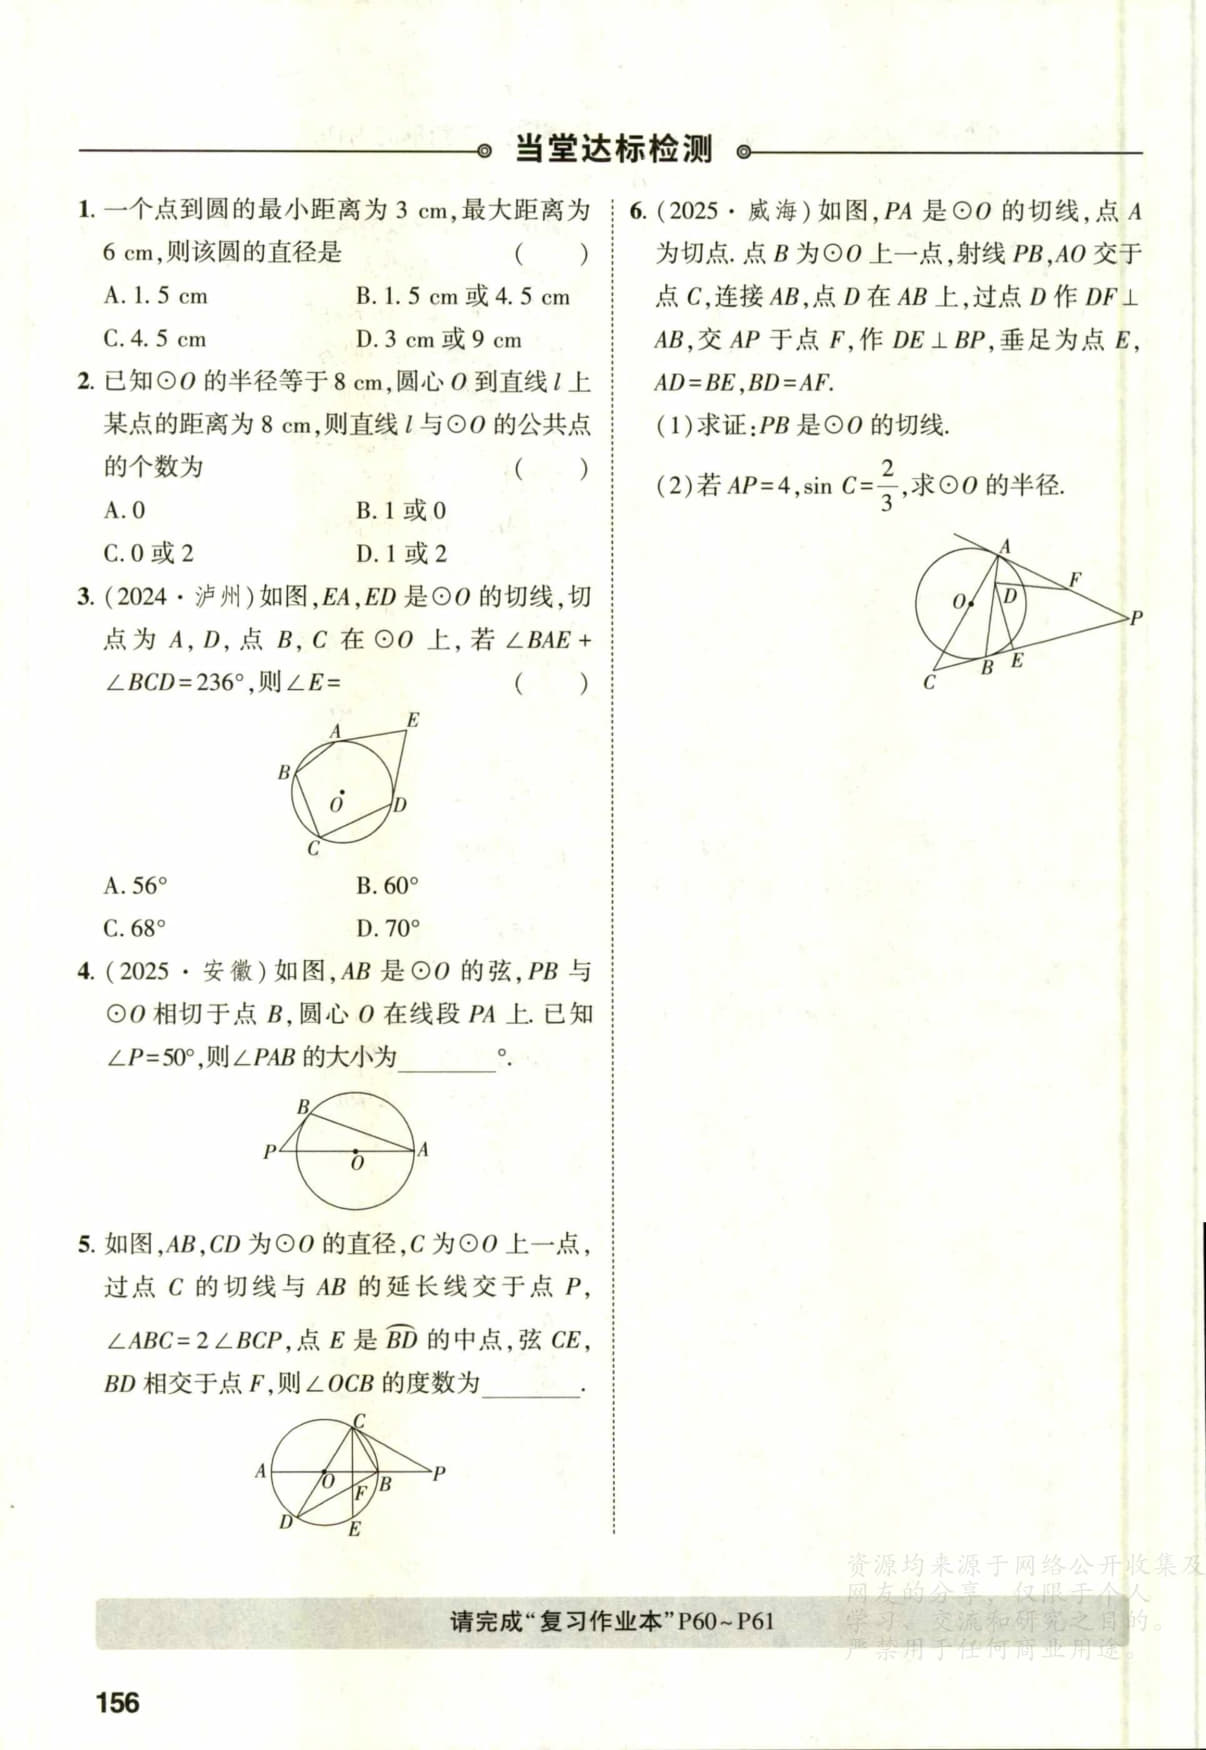 当堂达标检测
1. 一个点到圆的最小距离为 3 cm,最大距离为
6 cm,则该圆的直径是 ( )
A. 1. 5 cm B. 1. 5 cm 或 4. 5 cm
C. 4. 5 cm D. 3 cm 或 9 cm
2. 已知⊙O 的半径等于 8 cm,圆心 O 到直线 l 上
某点的距离为 8 cm,则直线 l 与⊙O 的公共点
的个数为 ( )
A. 0 B. 1 或 0
C. 0 或 2 D. 1 或 2
3. (2024·泸州)如图,EA,ED 是⊙O 的切线,切
点为 A, D, 点 B, C 在 ⊙O 上, 若 ∠BAE+
∠BCD=236°,则∠E= ( )
E
A
B
O
D
C
A. 56° B. 60°
C. 68° D. 70°
4. (2025·安徽)如图,AB 是⊙O 的弦,PB 与
⊙O 相切于点 B,圆心 O 在线段 PA 上. 已知
∠P=50°,则∠PAB 的大小为________°.
B
P
O
A
5. 如图,AB,CD 为⊙O 的直径,C 为⊙O 上一点,
过点 C 的切线与 AB 的延长线交于点 P,
∠ABC=2∠BCP,点 E 是 B͡D 的中点,弦 CE,
BD 相交于点 F,则∠OCB 的度数为________.
C
A
O
B
P
F
D
E
6. (2025·威海)如图,PA 是⊙O 的切线,点 A
为切点. 点 B 为⊙O 上一点,射线 PB,AO 交于
点 C,连接 AB,点 D 在 AB 上,过点 D 作 DF⊥
AB,交 AP 于点 F,作 DE⊥BP,垂足为点 E,
AD=BE,BD=AF.
(1)求证:PB 是⊙O 的切线.
(2)若 AP=4,sin C=2/3,求⊙O 的半径.
A
F
O
D
P
B
E
C
资源均来源于网络公开收集及
网友的分享，仅限于个人
学习、交流和研究之目的。
严禁用于任何商业用途。
请完成“复习作业本”P60~P61
156